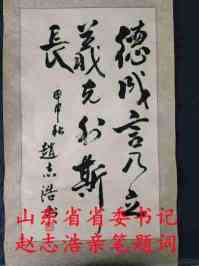 德成言乃立
義在利斯
長
甲申秋
趙志浩
山东省省委书记
赵志浩亲笔题词